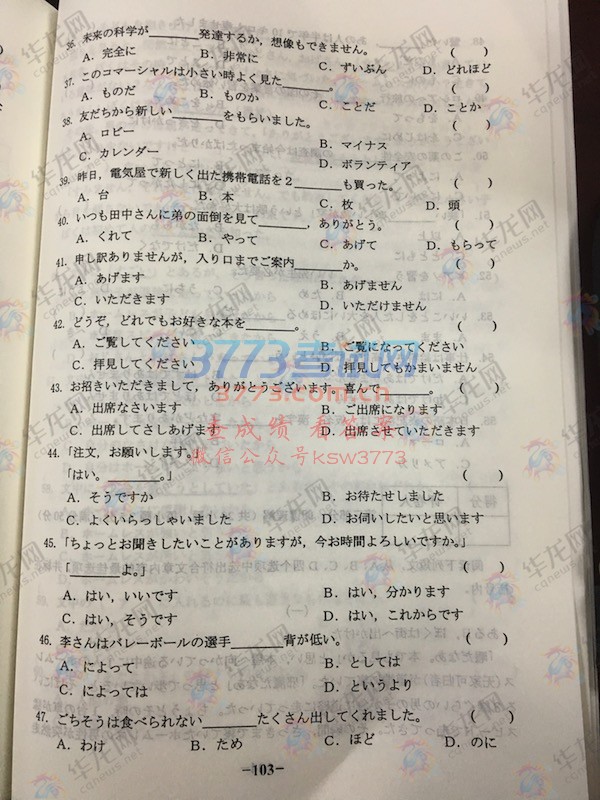 36. 未来の科学が________発達するか，想像もできません。 ( )
A. 完全に B. 非常に C. ずいぶん D. どれほど
37. このコマーシャルは小さい時よく見た________。 ( )
A. ものだ B. ものか C. ことだ D. ことか
38. 友だちから新しい________をもらいました。 ( )
A. ロビー B. マイナス
C. カレンダー D. ボランティア
39. 昨日，電気屋で新しく出た携帯電話を２________も買った。 ( )
A. 台 B. 本 C. 枚 D. 頭
40. いつも田中さんに弟の面倒を見て________，ありがとう。 ( )
A. くれて B. やって C. あげて D. もらって
41. 申し訳ありませんが，入り口までご案内________か。 ( )
A. あげます B. あげません
C. いただきます D. いただけません
42. どうぞ，どれでもお好きな本を________。 ( )
A. ご覧してください B. ご覧になってください
C. 拝見してください D. 拝見してもかまいません
43. お招きいただきまして，ありがとうございます。喜んで________。 ( )
A. 出席なさいます B. ご出席になります
C. 出席してさしあげます D. 出席させていただきます
44. 「注文，お願いします。」
「はい。________。」 ( )
A. そうですか B. お待たせしました
C. よくいらっしゃいました D. お伺いしたいと思います
45. 「ちょっとお聞きしたいことがありますが，今お時間よろしいですか。」
「________よ。」 ( )
A. はい，いいです B. はい，分かります
C. はい，そうです D. はい，これからです
46. 李さんはバレーボールの選手________背が低い。 ( )
A. によって B. としては
C. によっては D. というより
47. ごちそうは食べられない________たくさん出してくれました。 ( )
A. わけ B. ため C. ほど D. のに
-103-
华龙网
cqnews.net
3773考试网
3773.com.cn
查成绩 看答案
微信公众号ksw3773